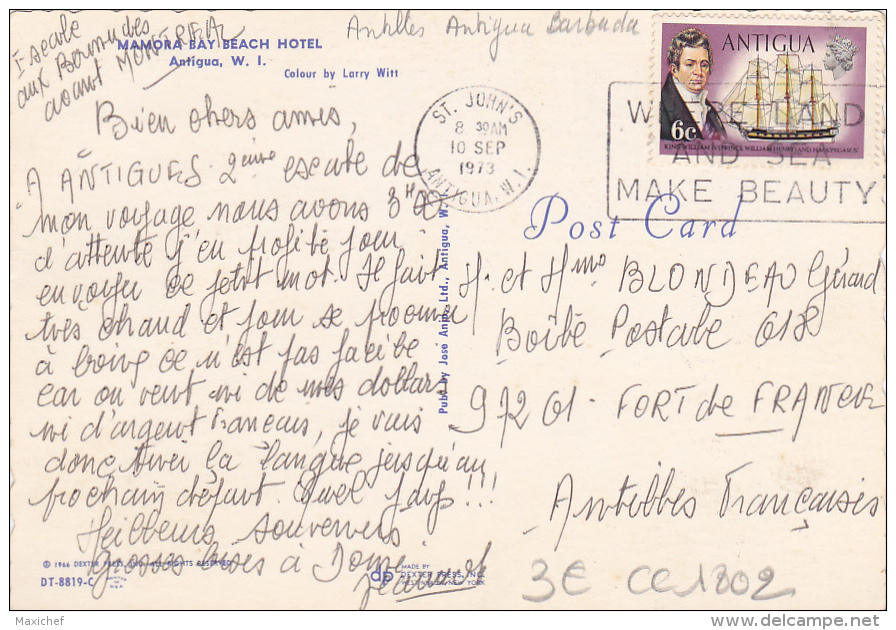 1 escale
aux Bermudes
avant MONTREAL
Antilles Antigua Barbuda
MAMORA BAY BEACH HOTEL
Antigua, W. I.
Colour by Larry Witt
ANTIGUA
6c
KING WILLIAM IV (PRINCE WILLIAM HENRY) AND H.M.S. 'PEGASUS'
ST. JOHN'S
8 30AM
10 SEP
1973
ANTIGUA. W. I.
WHERE LAND
AND SEA
MAKE BEAUTY
Post Card
Bien chers amis,
A ANTIGUES 2ème escale de
mon voyage nous avons 3H
d'attente j'en profite pour
envoyer ce petit mot. Il fait
très chaud et pour se procurer
à boire ce n'est pas facile
car on veut ni de mes dollars
ni d'argent Francais, je vais
donc tirer la langue jusqu'au
prochain départ. Quel pays !!!
Meilleurs souvenirs
Grosses bises à
M. et Mme BLONDEAU Gérard
Boîte Postale 618
97201 - FORT de FRANCE
Antilles Françaises
Publ by José Anjo, Ltd., Antigua, W.
© 1966 DEXTER PRESS, INC. ALL RIGHTS RESERVED
DT-8819-C
dp
MADE BY
DEXTER PRESS, INC.
WEST NYACK, NEW YORK
3€ CC1802
Maxichef
delcampe.net